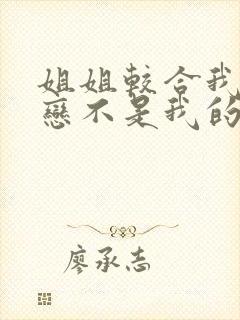 姐姐較合我
戀不是我的
廖承志